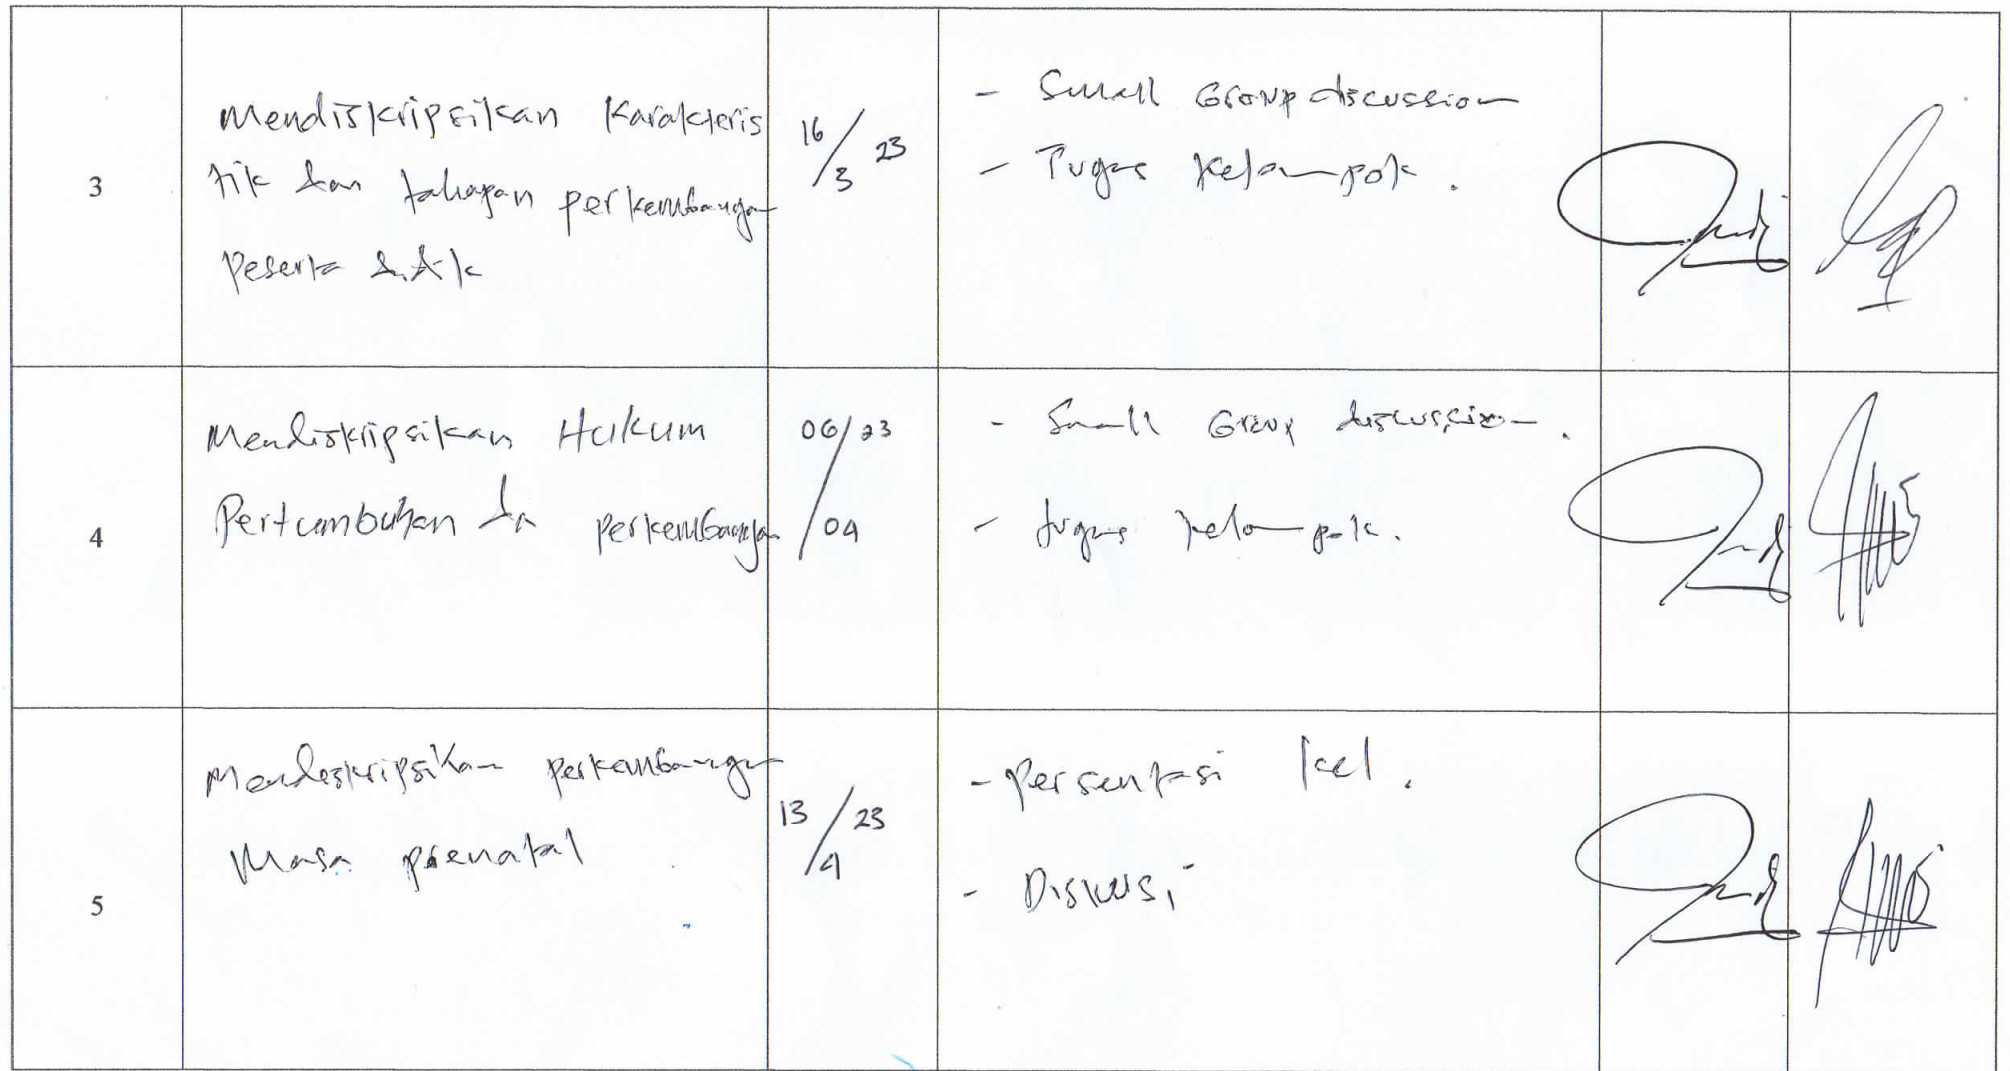 3
Mendiskripsikan Karakteris
tik dan tahapan perkembangan
Peserta didik
16/3 23
- Small Group discussion
- Tugas Kelompok.
4
Mendiskripsikan Hukum
Pertumbuhan dan perkembangan
06/04 23
- Small Group discussion.
- tugas kelompok.
5
Mendeskripsikan perkembangan
Masa prenatal
13/4 23
- Persentasi kel.
- Diskusi